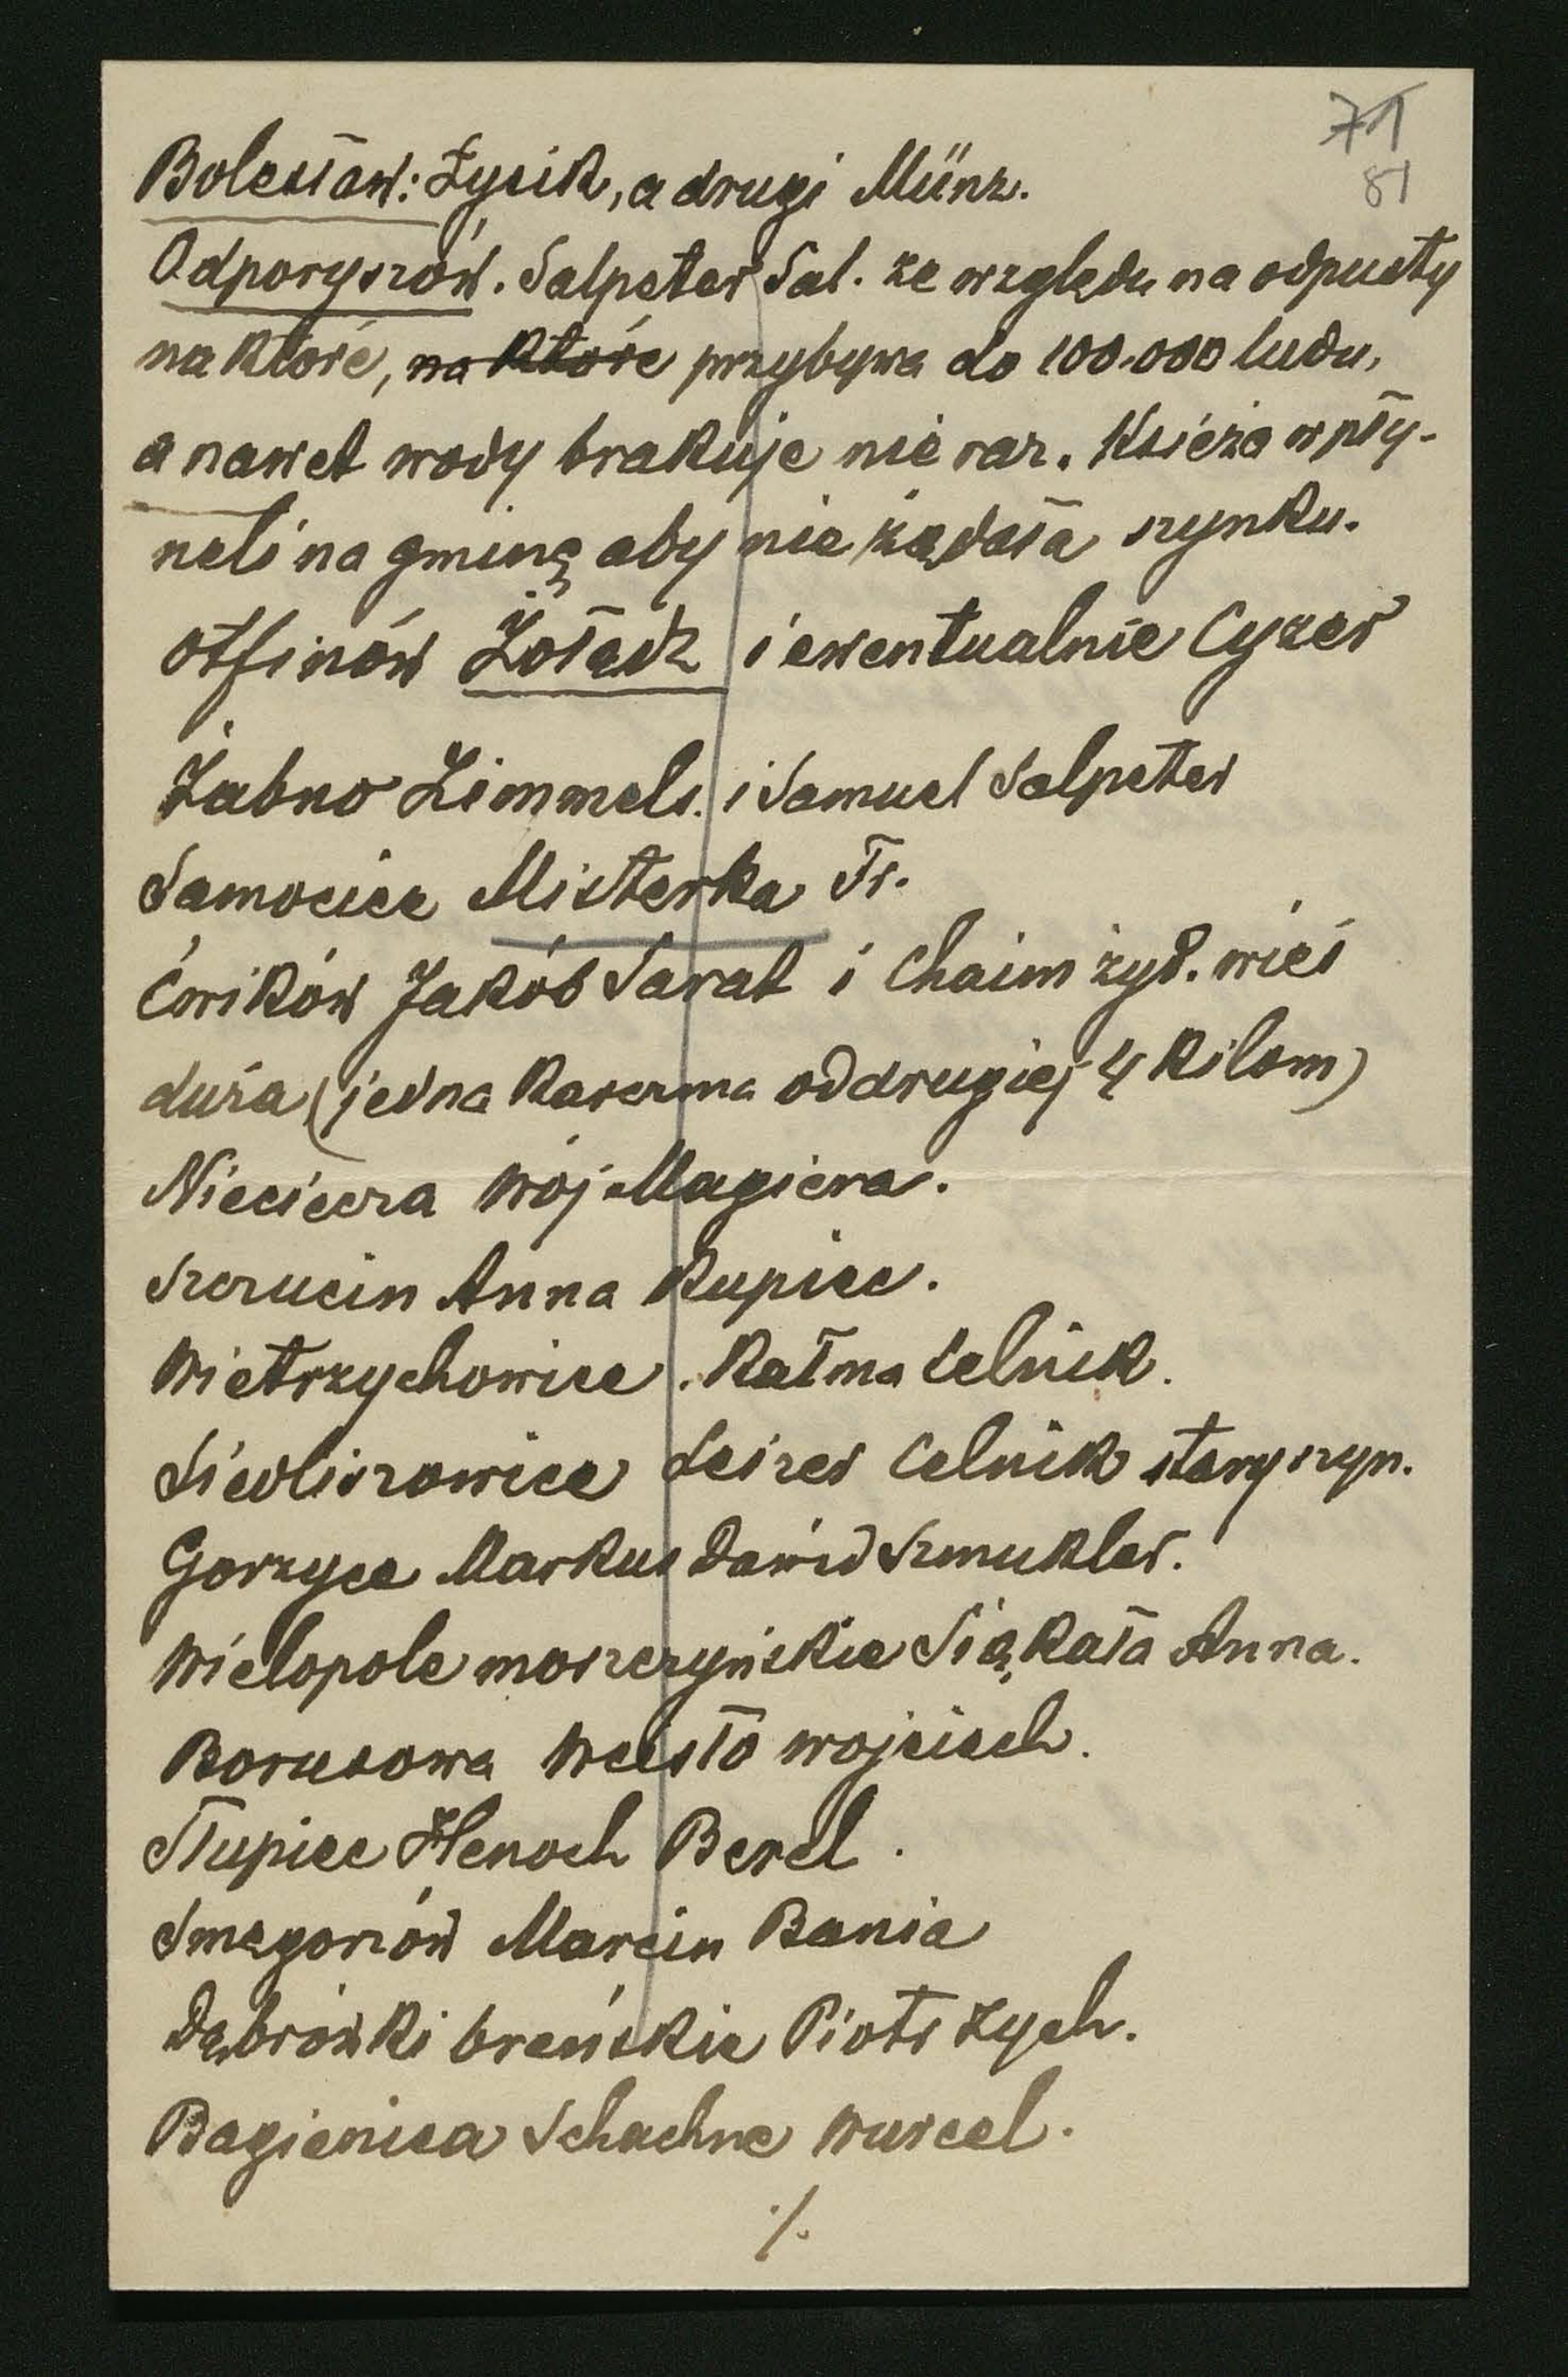 71
81
Bolesław: Łysik, a drugi Münz.
Odporyszów. Salpeter Sal. ze względu na odpusty
na które, na które przybywa do 100.000 ludu,
a nawet wody brakuje nie raz. Księża wpły-
neli na gminę aby nie żądała szynku.
Otfinów Żołądź i ewentualnie Cyzer
Żabno Zimmels. i Samuel Salpeter
Samocice Misterka Fr.
Ćwików Jakób Sarat i Chaim żyd. wieś
duża (jedna karczma od drugiej 4 kilom)
Nieciecza Woj Magiera.
Szczucin Anna Kupiec.
Wietrzychowice. Kalma Celnik.
Siedliszowice Leizer Celnik stary szyn.
Gorzyce Markus Dawid Szmukler.
Wielopole morszczyńskie Siąkała Anna.
Borusowa Wcisło Wojciech.
Słupiec Henoch Berel.
Smęgorzów Marcin Bania
Dąbrówki breńskie Piotr Zych.
Bagienica Schachne Wurcel.
./.